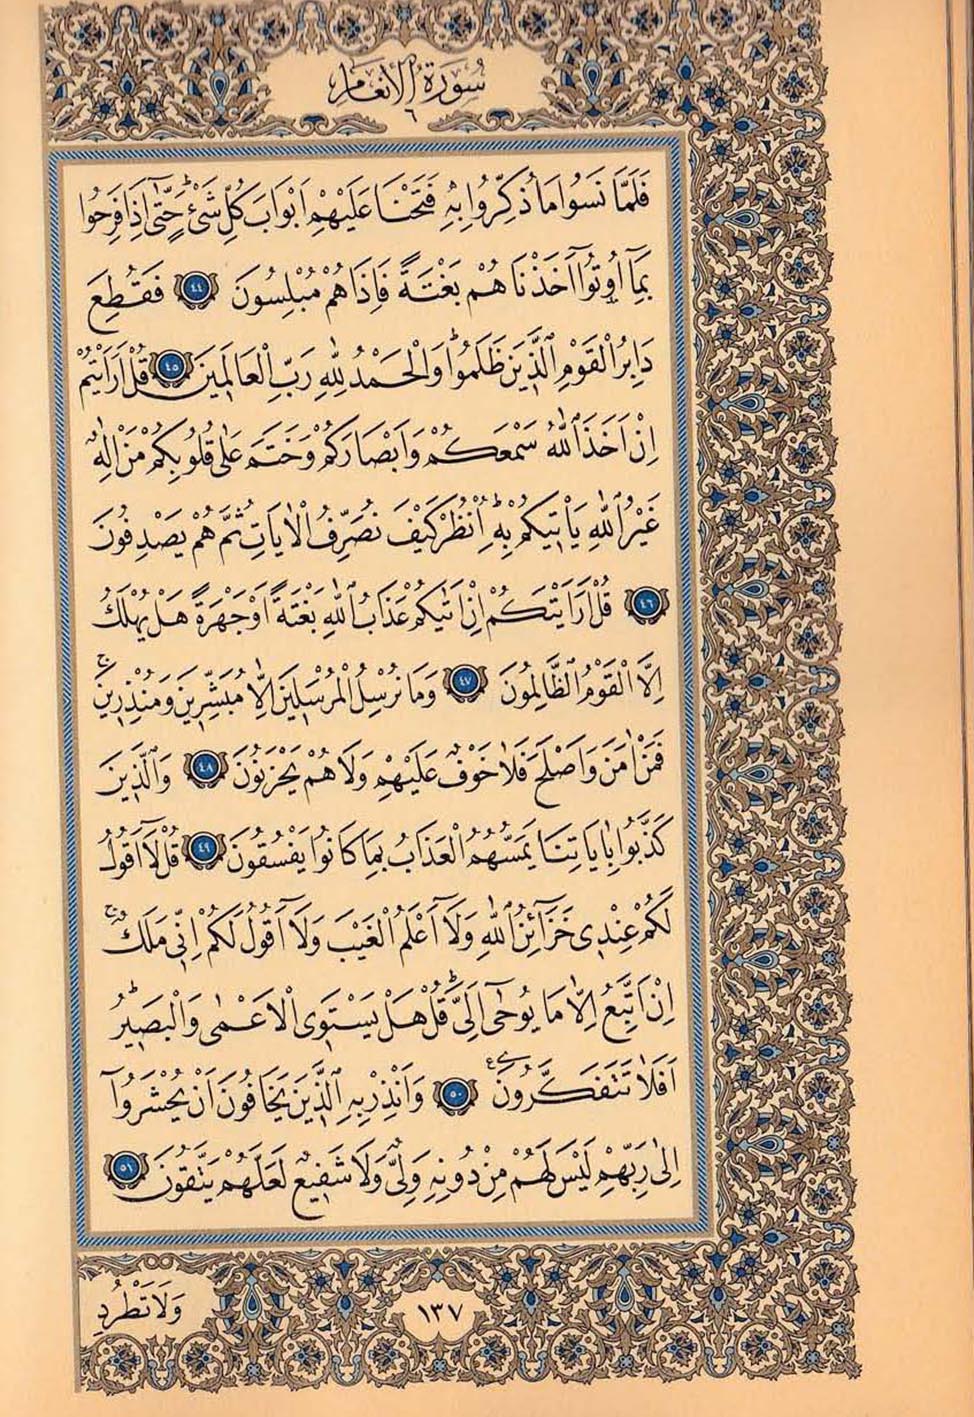 سُورَةُ الْاَنْعَامِ
٦
فَلَمَّا نَسُوا مَا ذُكِّرُوا بِهٖ فَتَحْنَا عَلَيْهِمْ اَبْوَابَ كُلِّ شَىْءٍۜ حَتّٰٓى اِذَا فَرِحُوا
بِمَٓا اُو۫تُٓوا اَخَذْنَاهُمْ بَغْتَةً فَاِذَا هُمْ مُبْلِسُونَ ﴿٤٤﴾ فَقُطِعَ
دَابِرُ الْقَوْمِ الَّذٖينَ ظَلَمُواۜ وَالْحَمْدُ لِلّٰهِ رَبِّ الْعَالَمٖينَ ﴿٤٥﴾ قُلْ اَرَاَيْتُمْ
اِنْ اَخَذَ اللّٰهُ سَمْعَكُمْ وَاَبْصَارَكُمْ وَخَتَمَ عَلٰى قُلُوبِكُمْ مَنْ اِلٰهٌ
غَيْرُ اللّٰهِ يَاْتٖيكُمْ بِهٖۜ اُنْظُرْ كَيْفَ نُصَرِّفُ الْاٰيَاتِ ثُمَّ هُمْ يَصْدِفُونَ
﴿٤٦﴾ قُلْ اَرَاَيْتَكُمْ اِنْ اَتٰيكُمْ عَذَابُ اللّٰهِ بَغْتَةً اَوْ جَهْرَةً هَلْ يُهْلَكُ
اِلَّا الْقَوْمُ الظَّالِمُونَ ﴿٤٧﴾ وَمَا نُرْسِلُ الْمُرْسَلٖينَ اِلَّا مُبَشِّرٖينَ وَمُنْذِرٖينَۚ
فَمَنْ اٰمَنَ وَاَصْلَحَ فَلَا خَوْفٌ عَلَيْهِمْ وَلَا هُمْ يَحْزَنُونَ ﴿٤٨﴾ وَالَّذٖينَ
كَذَّبُوا بِاٰيَاتِنَا يَمَسُّهُمُ الْعَذَابُ بِمَا كَانُوا يَفْسُقُونَ ﴿٤٩﴾ قُلْ لَٓا اَقُولُ
لَكُمْ عِنْدٖى خَزَٓائِنُ اللّٰهِ وَلَٓا اَعْلَمُ الْغَيْبَ وَلَٓا اَقُولُ لَكُمْ اِنّٖى مَلَكٌۚ
اِنْ اَتَّبِعُ اِلَّا مَا يُوحٰٓى اِلَىَّۜ قُلْ هَلْ يَسْتَوِى الْاَعْمٰى وَالْبَصٖيرُۜ
اَفَلَا تَتَفَكَّرُونَ۟ ﴿٥٠﴾ وَاَنْذِرْ بِهِ الَّذٖينَ يَخَافُونَ اَنْ يُحْشَرُٓوا
اِلٰى رَبِّهِمْ لَيْسَ لَهُمْ مِنْ دُونِهٖ وَلِىٌّ وَلَا شَفٖيعٌ لَعَلَّهُمْ يَتَّقُونَ ﴿٥١﴾
وَلَا تَطْرُدِ
١٣٧